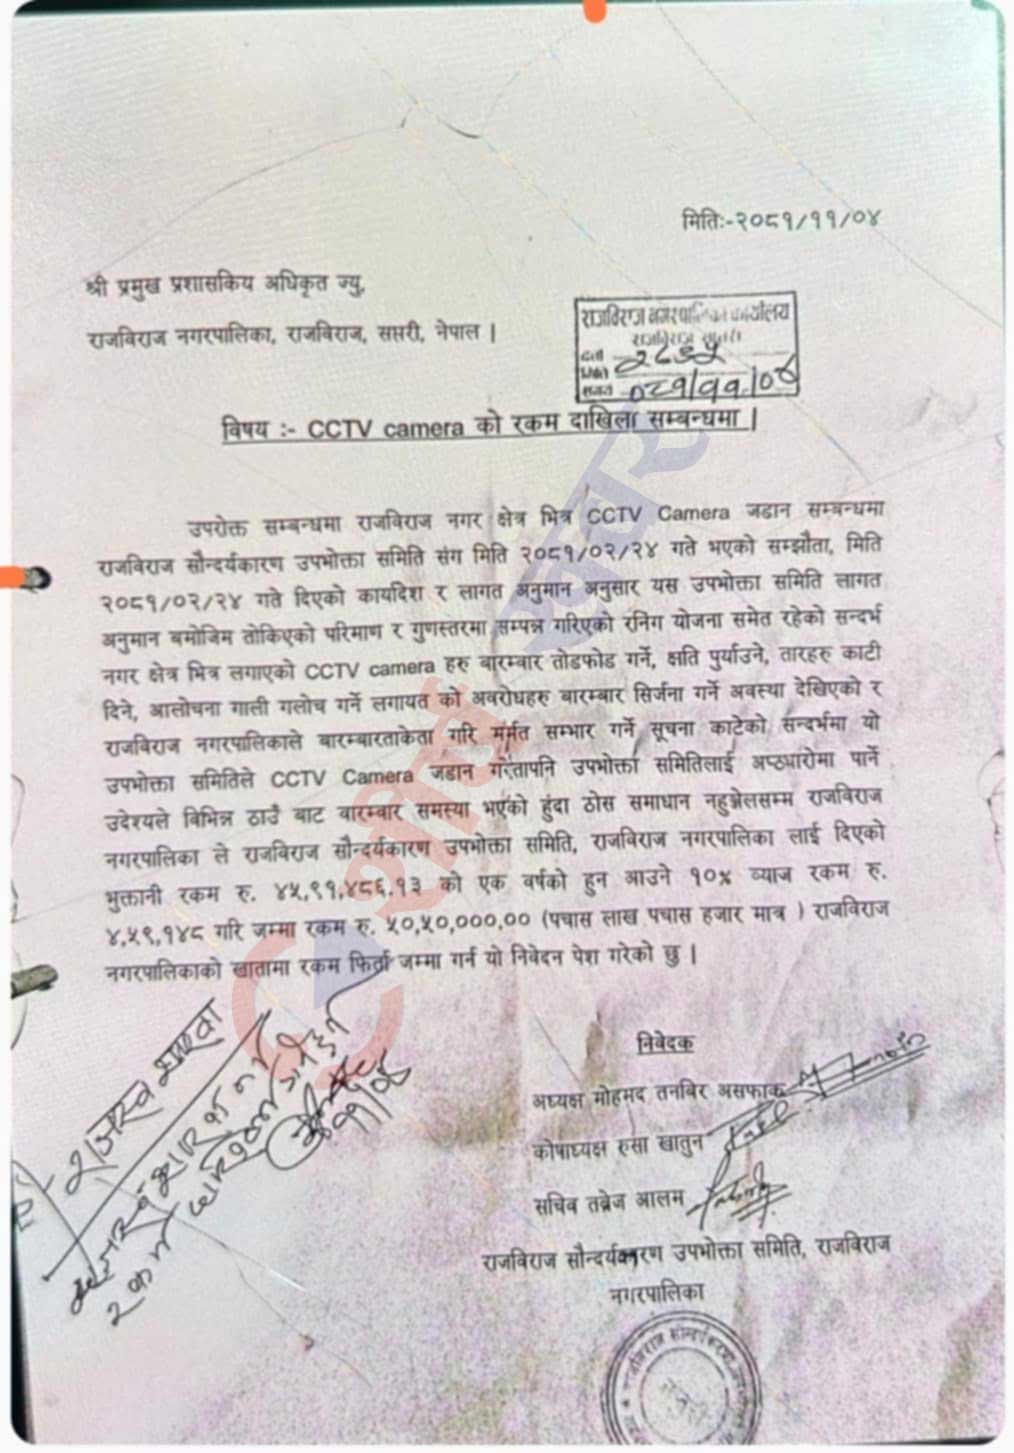 मितिः-२०८१/११/०४
श्री प्रमुख प्रशासकिय अधिकृत ज्यु,
राजविराज नगरपालिका, राजविराज, सप्तरी, नेपाल |
राजविराज नगरपालिका कार्यालय
राजविराज सप्तरी
दर्ता
०८१/११/०४
विषय :- CCTV camera को रकम दाखिला सम्बन्धमा |
उपरोक्त सम्बन्धमा राजविराज नगर क्षेत्र भित्र CCTV Camera जडान सम्बन्धमा
राजविराज सौन्दर्यकारण उपभोक्ता समिति संग मिति २०८१/०२/२४ गते भएको सम्झौता, मिति
२०८१/०२/२४ गते दिएको कार्यादेश र लागत अनुमान अनुसार यस उपभोक्ता समिति लागत
अनुमान बमोजिम तोकिएको परिमाण र गुणस्तरमा सम्पन्न गरिएको रनिंग योजना समेत रहेको सन्दर्भ
नगर क्षेत्र भित्र लगाएको CCTV camera हरु बारम्बार तोडफोड गर्ने, क्षति पुर्याउने, तारहरु काटी
दिने, आलोचना गाली गलोच गर्ने लगायत को अवरोधहरु बारम्बार सिर्जना गर्ने अवस्था देखिएको र
राजविराज नगरपालिकाले बारम्बारताकेता गरि मर्मत सम्भार गर्ने सूचना काटेको सन्दर्भमा यो
उपभोक्ता समितिले CCTV Camera जडान गरेतापनि उपभोक्ता समितिलाई अप्ठ्यारोमा पार्ने
उदेश्यले विभिन्न ठाउँ बाट बारम्बार समस्या भएको हुंदा ठोस समाधान नहुन्जेलसम्म राजविराज
नगरपालिका ले राजविराज सौन्दर्यकारण उपभोक्ता समिति, राजविराज नगरपालिका लाई दिएको
भुक्तानी रकम रु. ४५,९१,४८६.१३ को एक वर्षको हुन आउने १०% व्याज रकम रु.
४,५९,१४८ गरि जम्मा रकम रु. ५०,५०,०००,०० (पचास लाख पचास हजार मात्र ) राजविराज
नगरपालिकाको खातामा रकम फिर्ता जम्मा गर्न यो निवेदन पेश गरेको छु |
राजस्व शाखा
११/०४
निवेदक
अध्यक्ष मोहमद तनबिर असफाक
कोषाध्यक्ष रुसा खातुन
सचिव तब्रेज आलम
राजविराज सौन्दर्यकारण उपभोक्ता समिति, राजविराज
नगरपालिका